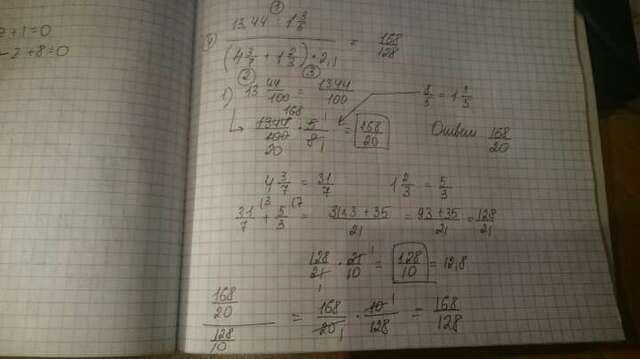 z+1=0
-z+8=0
①
13,44 : 1 3/5
(4 3/7 + 1 2/3) · 2,1 = 168/128
② ③
1) 13 44/100 = 1344/100 8/5 = 1 3/5
168 1
1344/100 · 5/8 = 168/20 Ответ 168/20
20 1
4 3/7 = 31/7 1 2/3 = 5/3
31/7 (3 + 5/3 (7 = 31·3+35/21 = 93+35/21 = 128/21
128/21 · 21/10 = 128/10 = 12,8
168/20 / 128/10 = 168/20 · 10/128 = 168/128